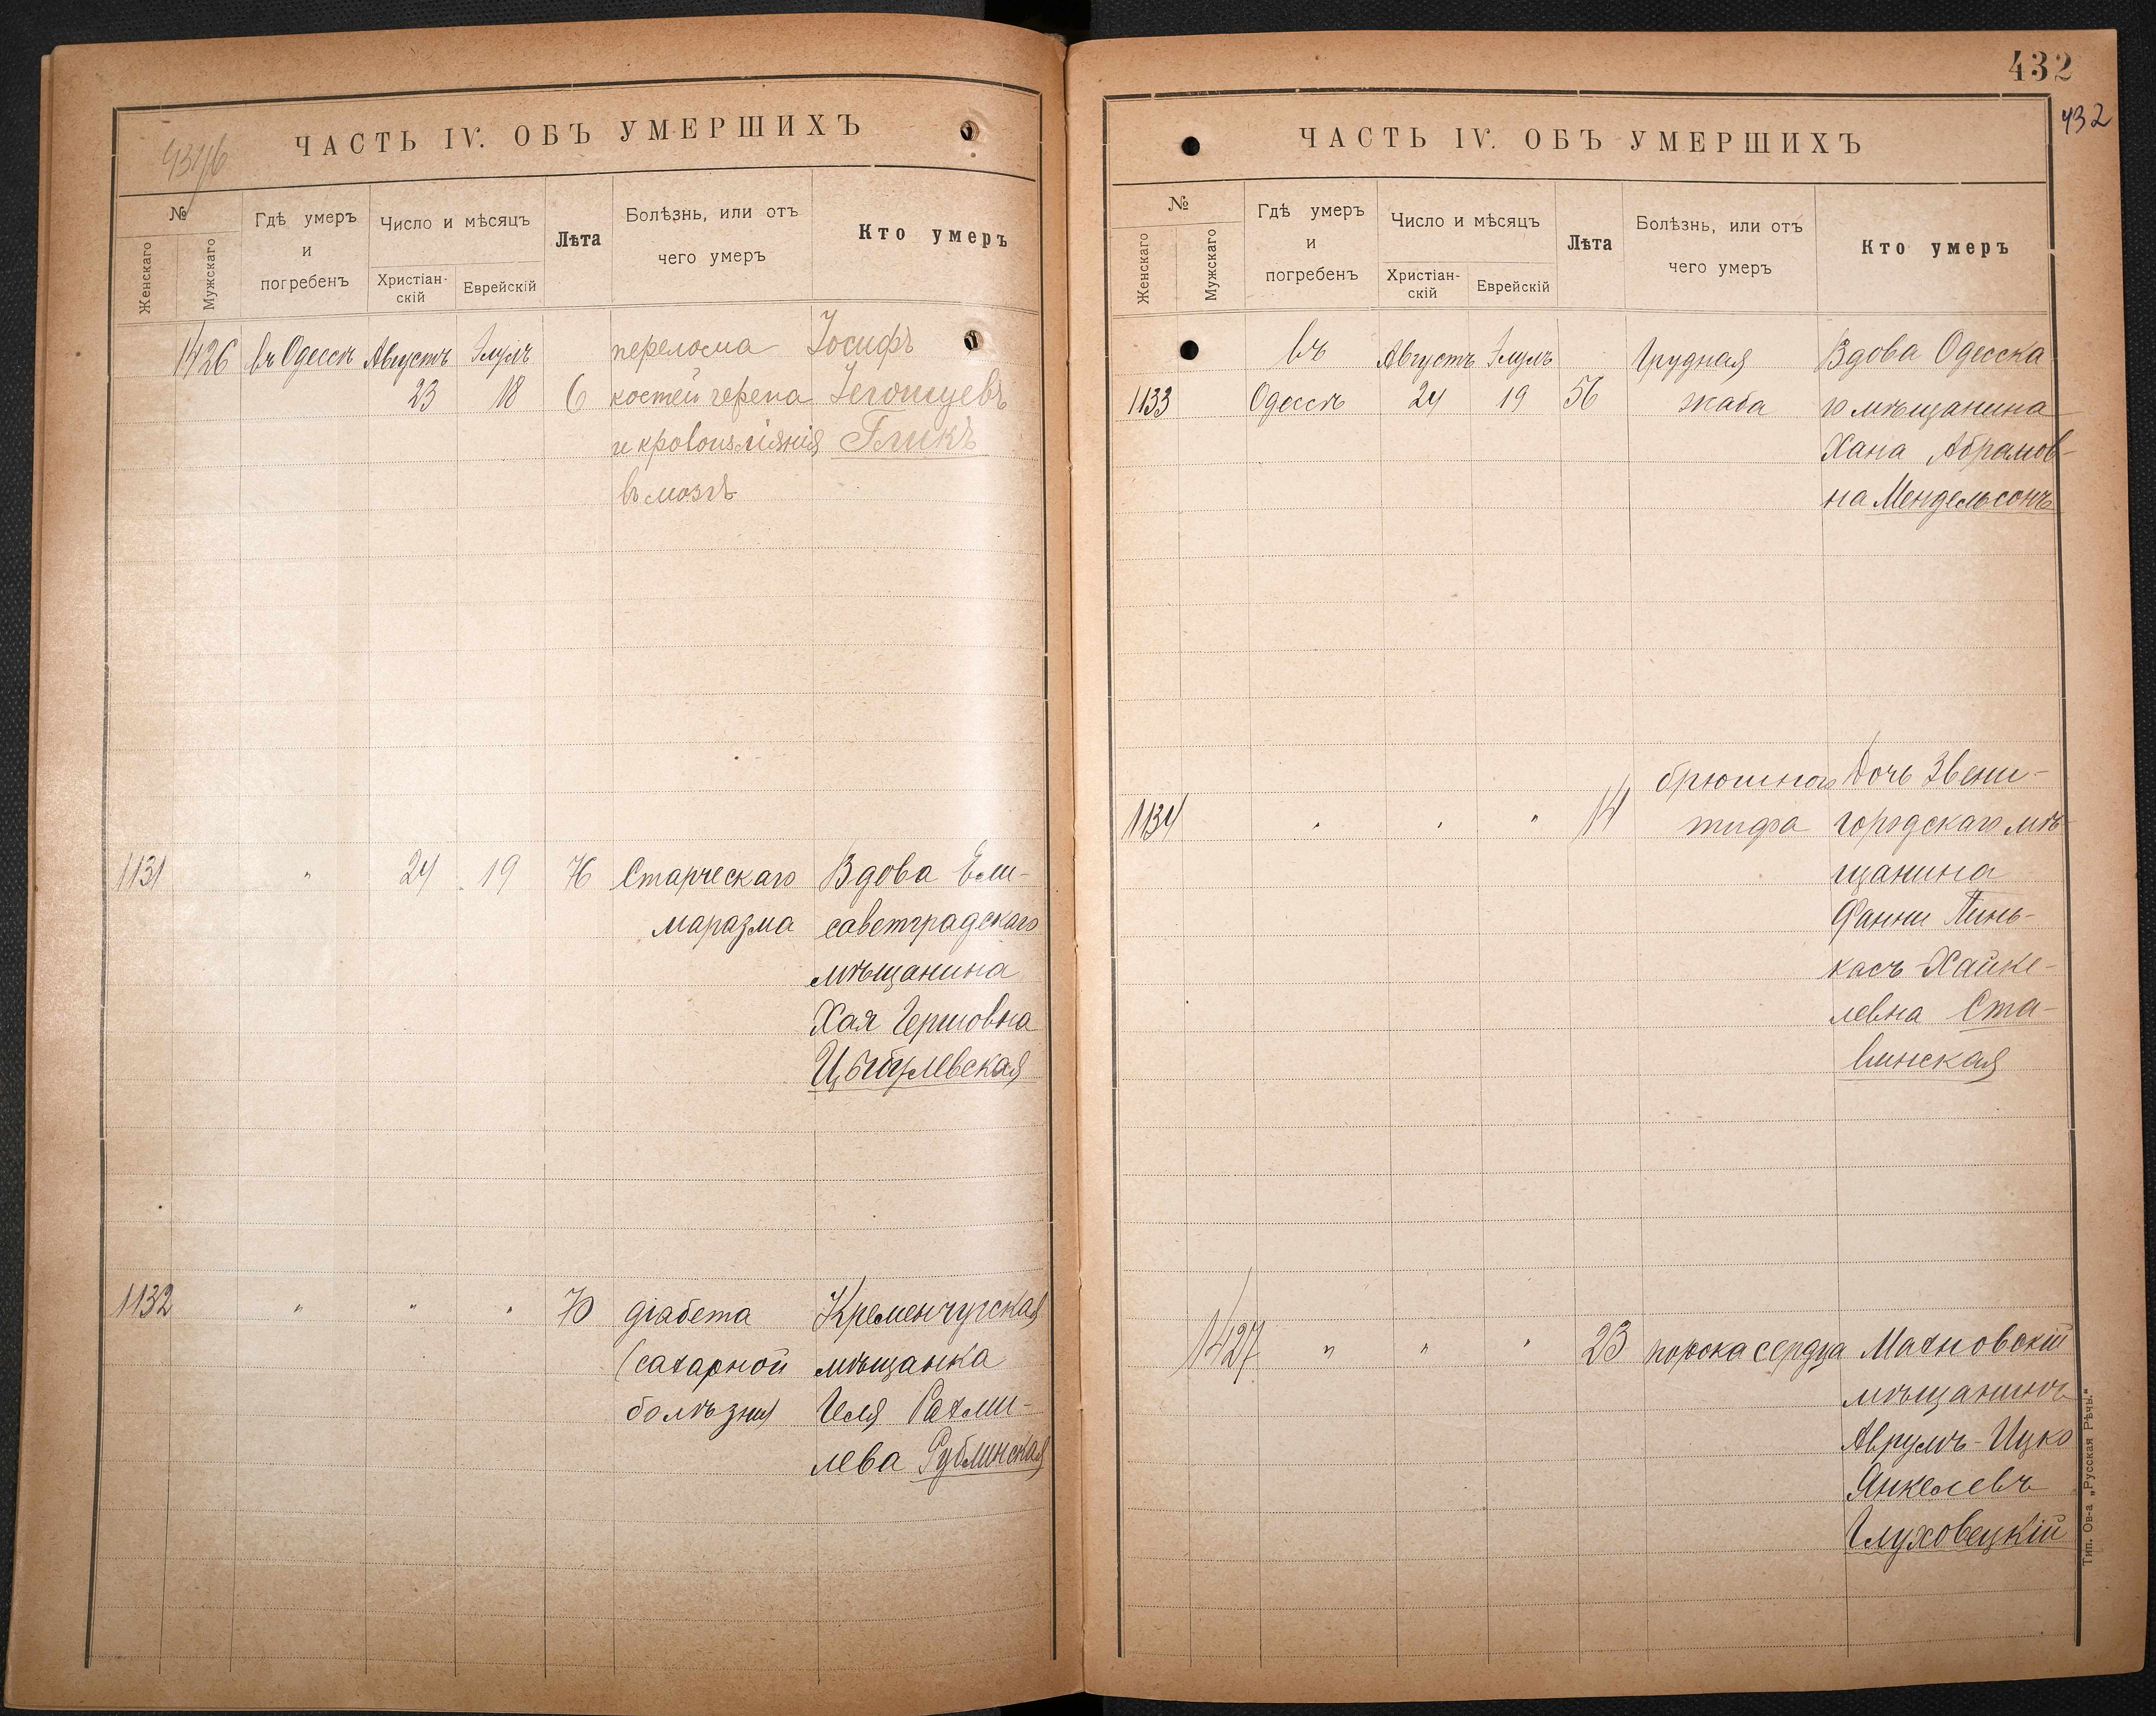 432
432
ЧАСТЬ IV. ОБЪ УМЕРШИХЪ
№
Женскаго
Мужскаго
Гдѣ умеръ
и
погребенъ
Число и мѣсяцъ
Христіан-
скій
Еврейскій
Лѣта
Болѣзнь, или отъ
чего умеръ
Кто умеръ
1426 въ Одессѣ Августъ Элулъ перелома Іосифъ
23 18 6 костей черепа
и кровоизліянія Гликъ
въ мозгъ
1131 " 24 19 76 Старческаго Вдова Ели-
маразма саветградскаго
мѣщанина
Хая Гершовна
Цыбулевская
1132 " " " 70 діабета Кременчугская
(сахарной мѣщанка
болѣзни) Рахми-
лева Рублинская
ЧАСТЬ IV. ОБЪ УМЕРШИХЪ
№
Женскаго
Мужскаго
Гдѣ умеръ
и
погребенъ
Число и мѣсяцъ
Христіан-
скій
Еврейскій
Лѣта
Болѣзнь, или отъ
чего умеръ
Кто умеръ
въ Августъ Элулъ Грудная Вдова Одесска
1133 Одессѣ 24 19 56 жаба го мѣщанина
Хана Абрамов-
на Мендельсонъ
брюшного Дочь Звени-
1134 " " " 14 тифа городскаго мѣ-
щанина
Фанни Пинь-
касъ-Хайке-
левна Ста-
винская
1427 " " " 23 порока сердца Махновскій
мѣщанинъ
Аврумъ-Ицко
Янкелевъ
Глуховецкій
Тип. Ов-а „Русская Рѣчь.“